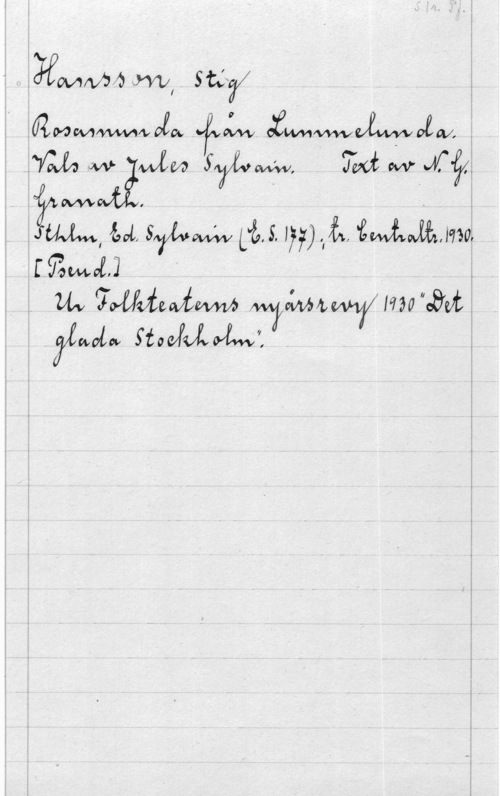 Str. Pf.
Hansson, Stig
Rosamunda från Lummelunda.
Vals av Jules Sylvain. Text av N. G.
Granath.
Sthlm, Ed. Sylvain (E. S. 177); tr. Centraltr. 1930.
[Pseud.]
Ur Folkteaterns nyårsrevy 1930 "Det
glada Stockholm".